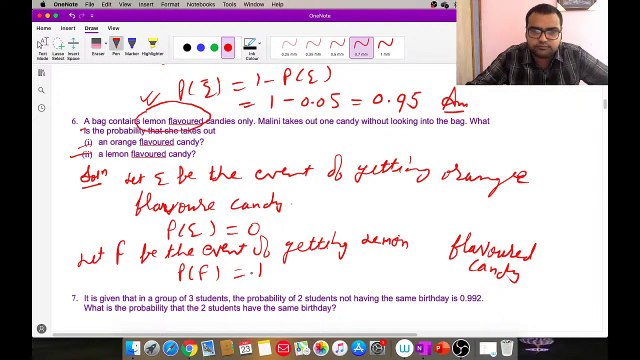 OneNote
File
Edit
View
Insert
Format
Notebooks
Tools
Window
Help
OneNote
Home
Insert
Draw
View
Text Mode
Lasso Select
Insert Space
Eraser
Pen
Marker
Highlighter
Black
Blue
Green
Red
0.25 mm
0.35 mm
0.5 mm
0.7 mm
1 mm
P(E) = 1 - P(E)
= 1 - 0.05 = 0.95 Ans
6. A bag contains lemon flavoured candies only. Malini takes out one candy without looking into the bag. What
is the probability that she takes out
(i) an orange flavoured candy?
(ii) a lemon flavoured candy?
Soln Let E be the event of getting orange
flavoure candy.
P(E) = 0
Let F be the event of getting lemon flavoured
candy
P(F) = 1
7. It is given that in a group of 3 students, the probability of 2 students not having the same birthday is 0.992.
What is the probability that the 2 students have the same birthday?